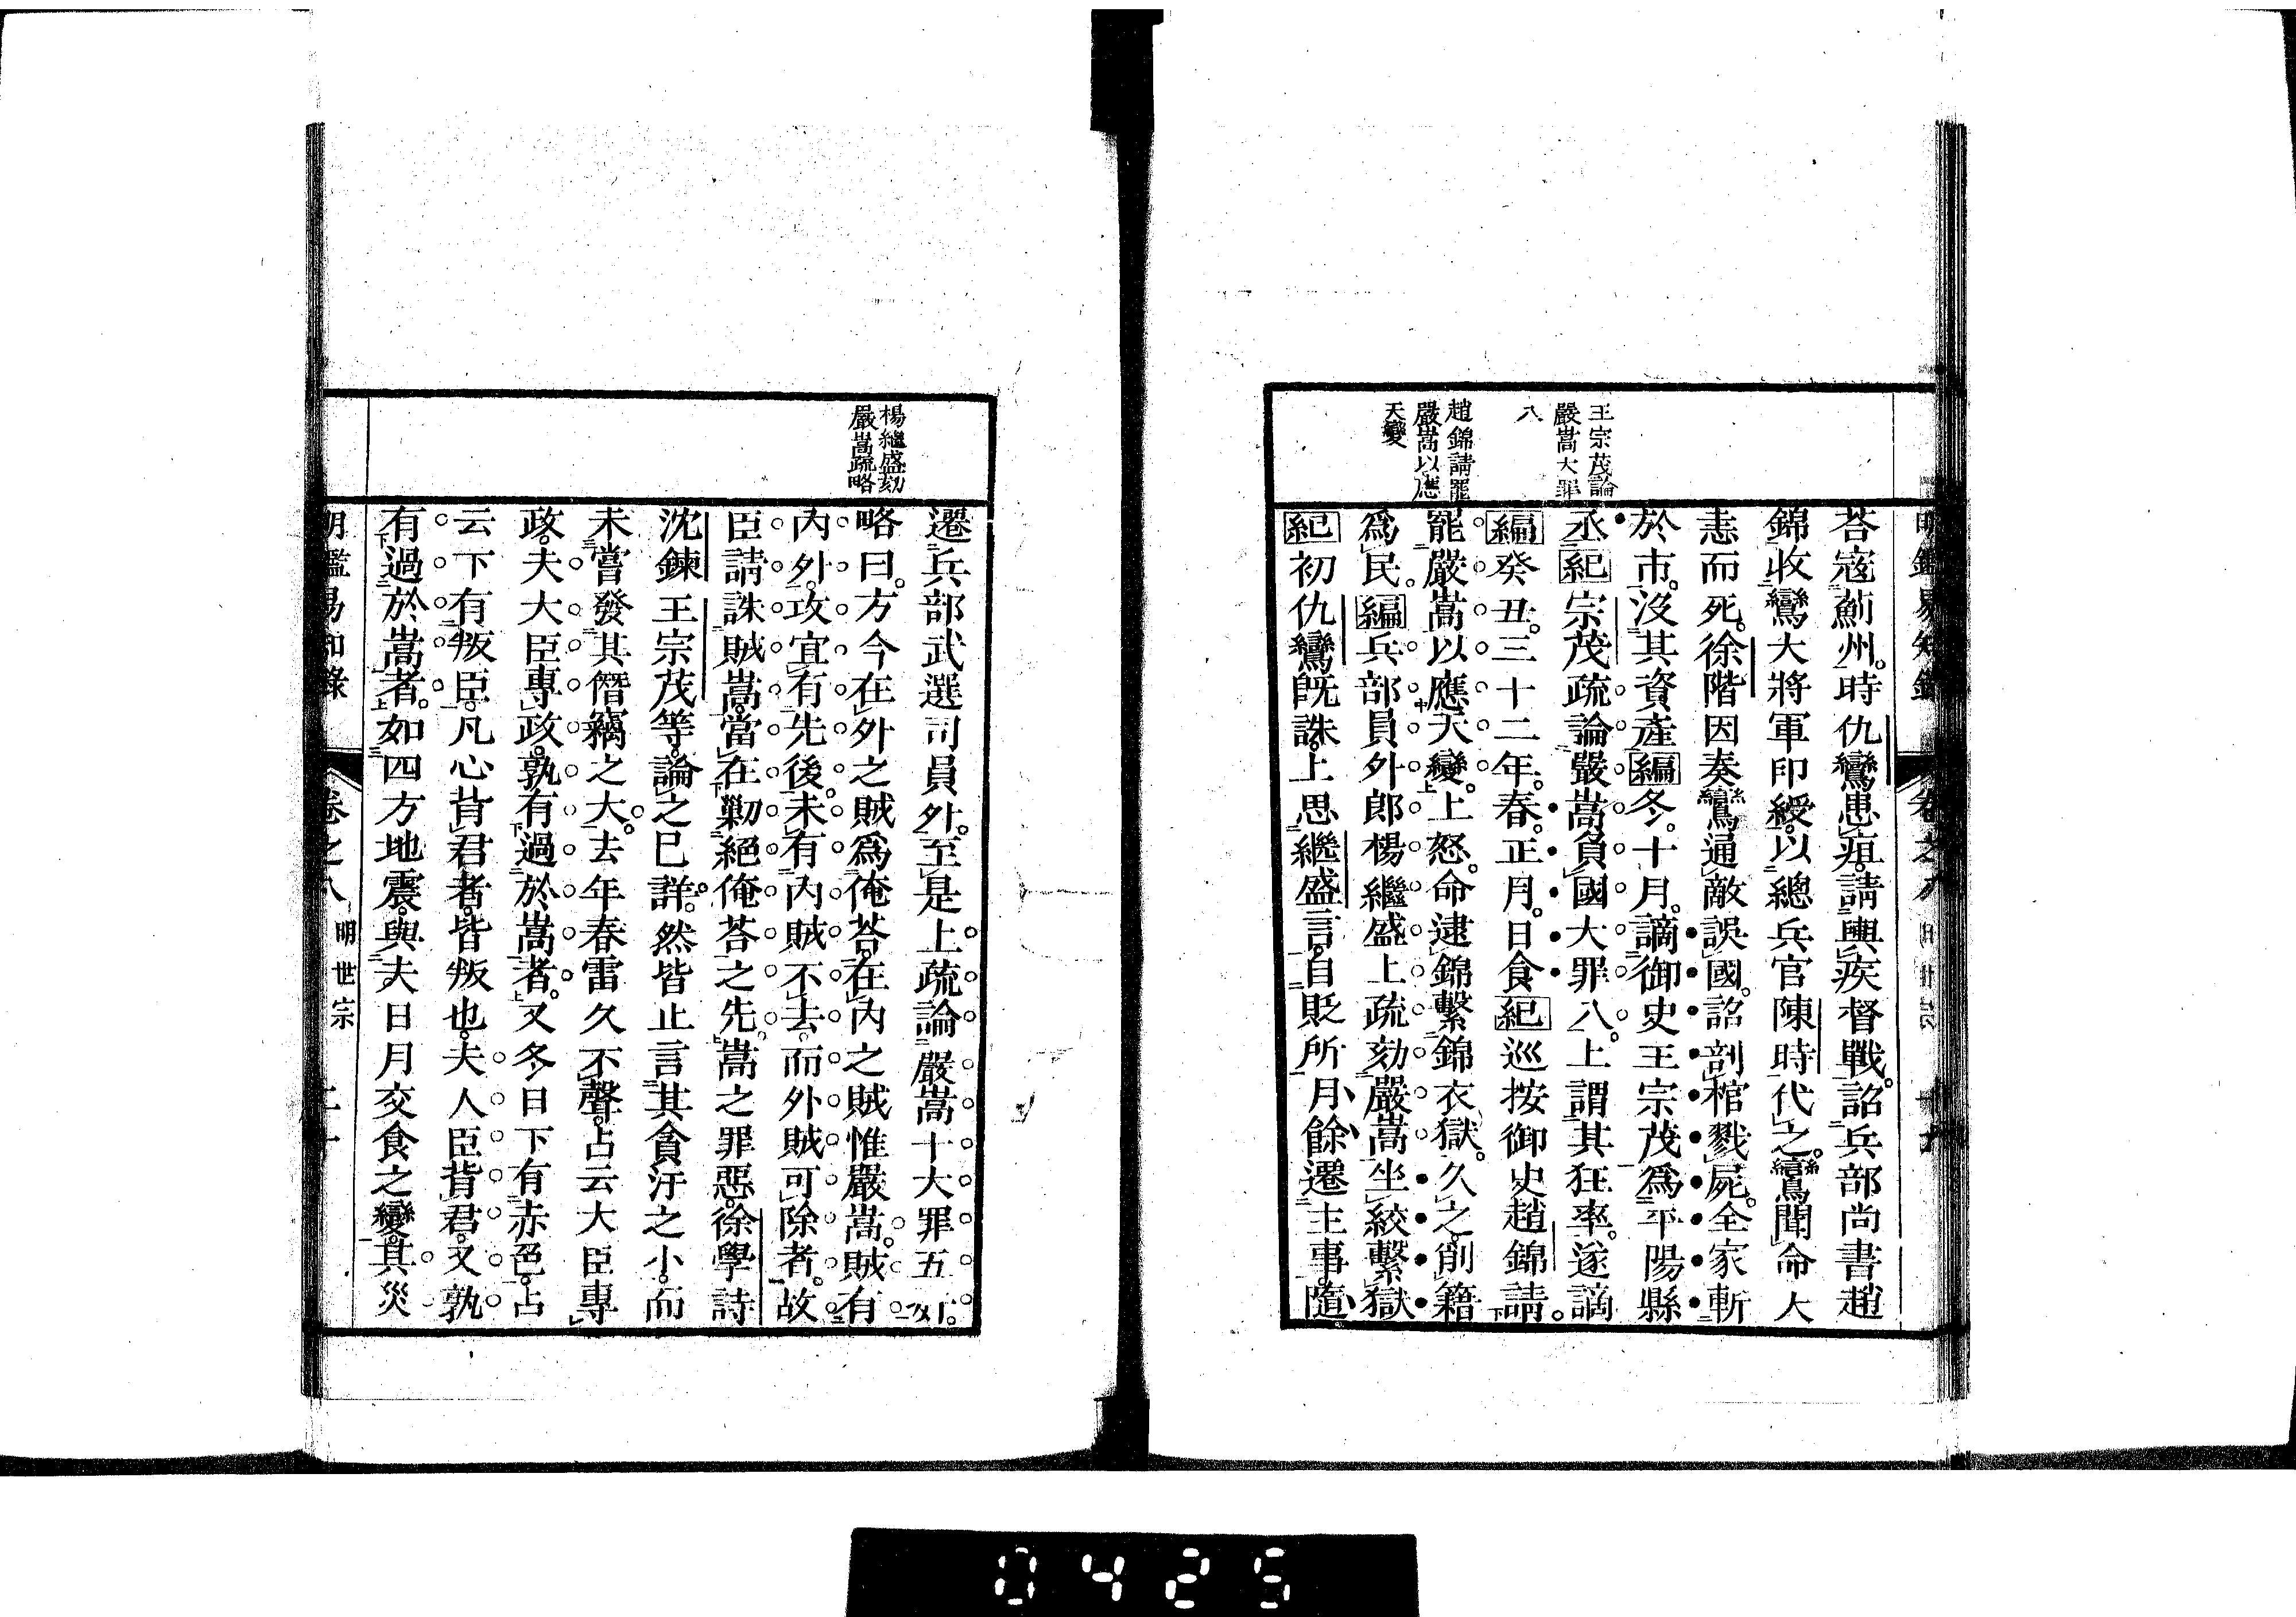 荅寇薊州。時仇鸞患疽。請輿疾督戰。詔兵部尚書趙
錦收鸞大將軍印綬。以總兵官陳時代之。鸞聞命大
恚而死。徐階因奏鸞通敵誤國。詔剖棺戮屍。全家斬
於市。沒其資產編冬。十月。謫御史王宗茂爲平陽縣
丞紀宗茂疏論嚴嵩負國大罪八。上謂其狂率。遂謫
編癸丑。三十二年。春。正月。日食紀巡按御史趙錦請。
罷嚴嵩以應天變。上怒。命逮錦繫錦衣獄。久之。削籍
爲民。編兵部員外郎楊繼盛上疏劾嚴嵩坐絞繫獄
紀初仇鸞旣誅。上思繼盛言。自貶所月餘遷主事。隨
王宗茂論
嚴嵩大罪
八
趙錦請罷
嚴嵩以應
天變
遷兵部武選司員外。至是上疏論嚴嵩十大罪五奸。
略曰。方今在外之賊爲俺荅。在內之賊惟嚴嵩。賊有
內外。攻宜有先後。未有內賊不去。而外賊可除者。故
臣請誅賊嵩。當在勦絕俺荅之先。嵩之罪惡。徐學詩
沈鍊王宗茂等。論之已詳。然皆止言其貪汙之小。而
未嘗發其僭竊之大。去年春雷久不聲。占云大臣專
政。夫大臣專政。孰有過於嵩者。又冬日下有赤色。占
云下有叛臣。凡心背君者。皆叛也。夫人臣背君。又孰
有過於嵩者。如四方地震。與夫日月交食之變。其災
楊繼盛劾
嚴嵩疏略
明鑑易知錄 卷之八 明世宗 二十
0425